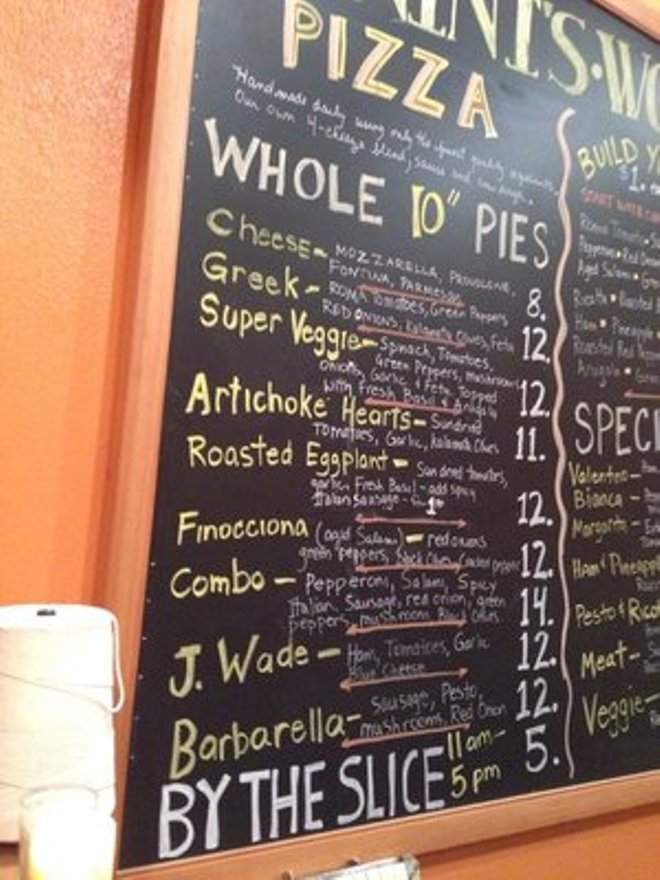 PIZZA
Handmade daily using only the finest quality
Our own 4-cheese blend, sauce and
WHOLE 10" PIES
Cheese - MOZZARELLA, PROVOLONE,
FONTINA, PARMESAN 8.
Greek - ROMA Tomatoes, Green Peppers
RED ONIONS, Kalamata Olives, Feta 12.
Super Veggie - Spinach, Tomatoes,
Green Peppers, mushrooms
onions, Garlic, & Feta Topped
with Fresh Basil & Arugula 12.
Artichoke Hearts - Sundried
Tomatoes, Garlic, Kalamata Olives 11.
Roasted Eggplant - Sun dried tomatoes,
garlic, Fresh Basil - add spicy
Italian Sausage - 1 12.
Finocciona (aged Salami) - red onions
green peppers, black olives, 12.
Combo - Pepperoni, Salami, Spicy
Italian Sausage, red onion, green
peppers, mushroom Black Olives 14.
J. Wade - Ham, Tomatoes, Garlic
Blue Cheese 12.
Barbarella - Sausage, Pesto,
mushrooms, Red Onion 12.
BY THE SLICE 11am-
5pm 5.
BUILD
$1.
Roma Tomato
Aged Salami
Ricotta • Roasted
Ham • Pineapple
Roasted Red
Arugula
SPECI
Valentino -
Bianca -
Margarita -
Ham & Pineappl
Pesto & Rico
Meat -
Veggie -